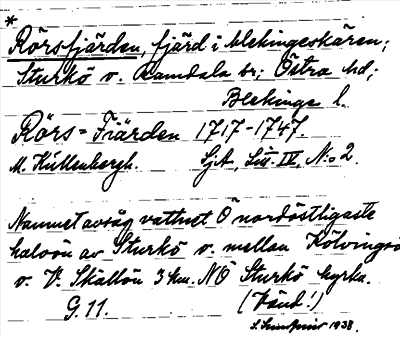 *
Rörsfjärden, fjärd i blekingeskären;
Sturkö v. Ramdala sr; Östra hd;
Blekinge l.
Rörs-Fiärden 1717-1747.
M. Kullenbergh. SjA, Litt. IV, N:o 2.
Namnet avsåg vattnet Ö nordöstligaste
halvön av Sturkö v. mellan
v. V. Skällön 3 km. NÖ Sturkö kyrka.
G. 11. (Känd!)
1938.